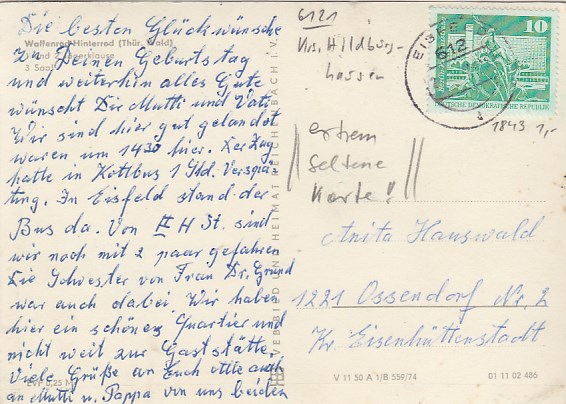 Die besten Glückwünsche
Waffenrod-Hinterrod (Thür. Wald)
zu Deinen Geburtstag
3 Saal
und weiterhin alles Gute
wünscht Dir Mutti und Vati
Wir sind hier gut gelandet
waren um 1430 hier. Der Zug
hatte in Kottbus 1 Std. Verspä-
tung. In Eisfeld stand der
Bus da. Von H St. sind
wir noch mit 2 paar gefahren
Die Schwester von Frau Dr. Grund
war auch dabei Wir haben
hier ein schönes Quartier und
nicht weit zur Gaststätte.
Viele Grüße an Euch alle auch
EVP 0,25 M
an Mutti u. Pappa von uns beiden
VEB BILD UND HEIMAT REICHENBACH I. V.
6121
Krs. Hildburg-
hausen
612
10
DEUTSCHE DEMOKRATISCHE REPUBLIK
1843 1,-
extrem
seltene
Karte!!
Anita Hanswald
1221 Ossendorf Nr. 2
Kr. Eisenhüttenstadt
V 11 50 A 1/B 559/74 01 11 02 486